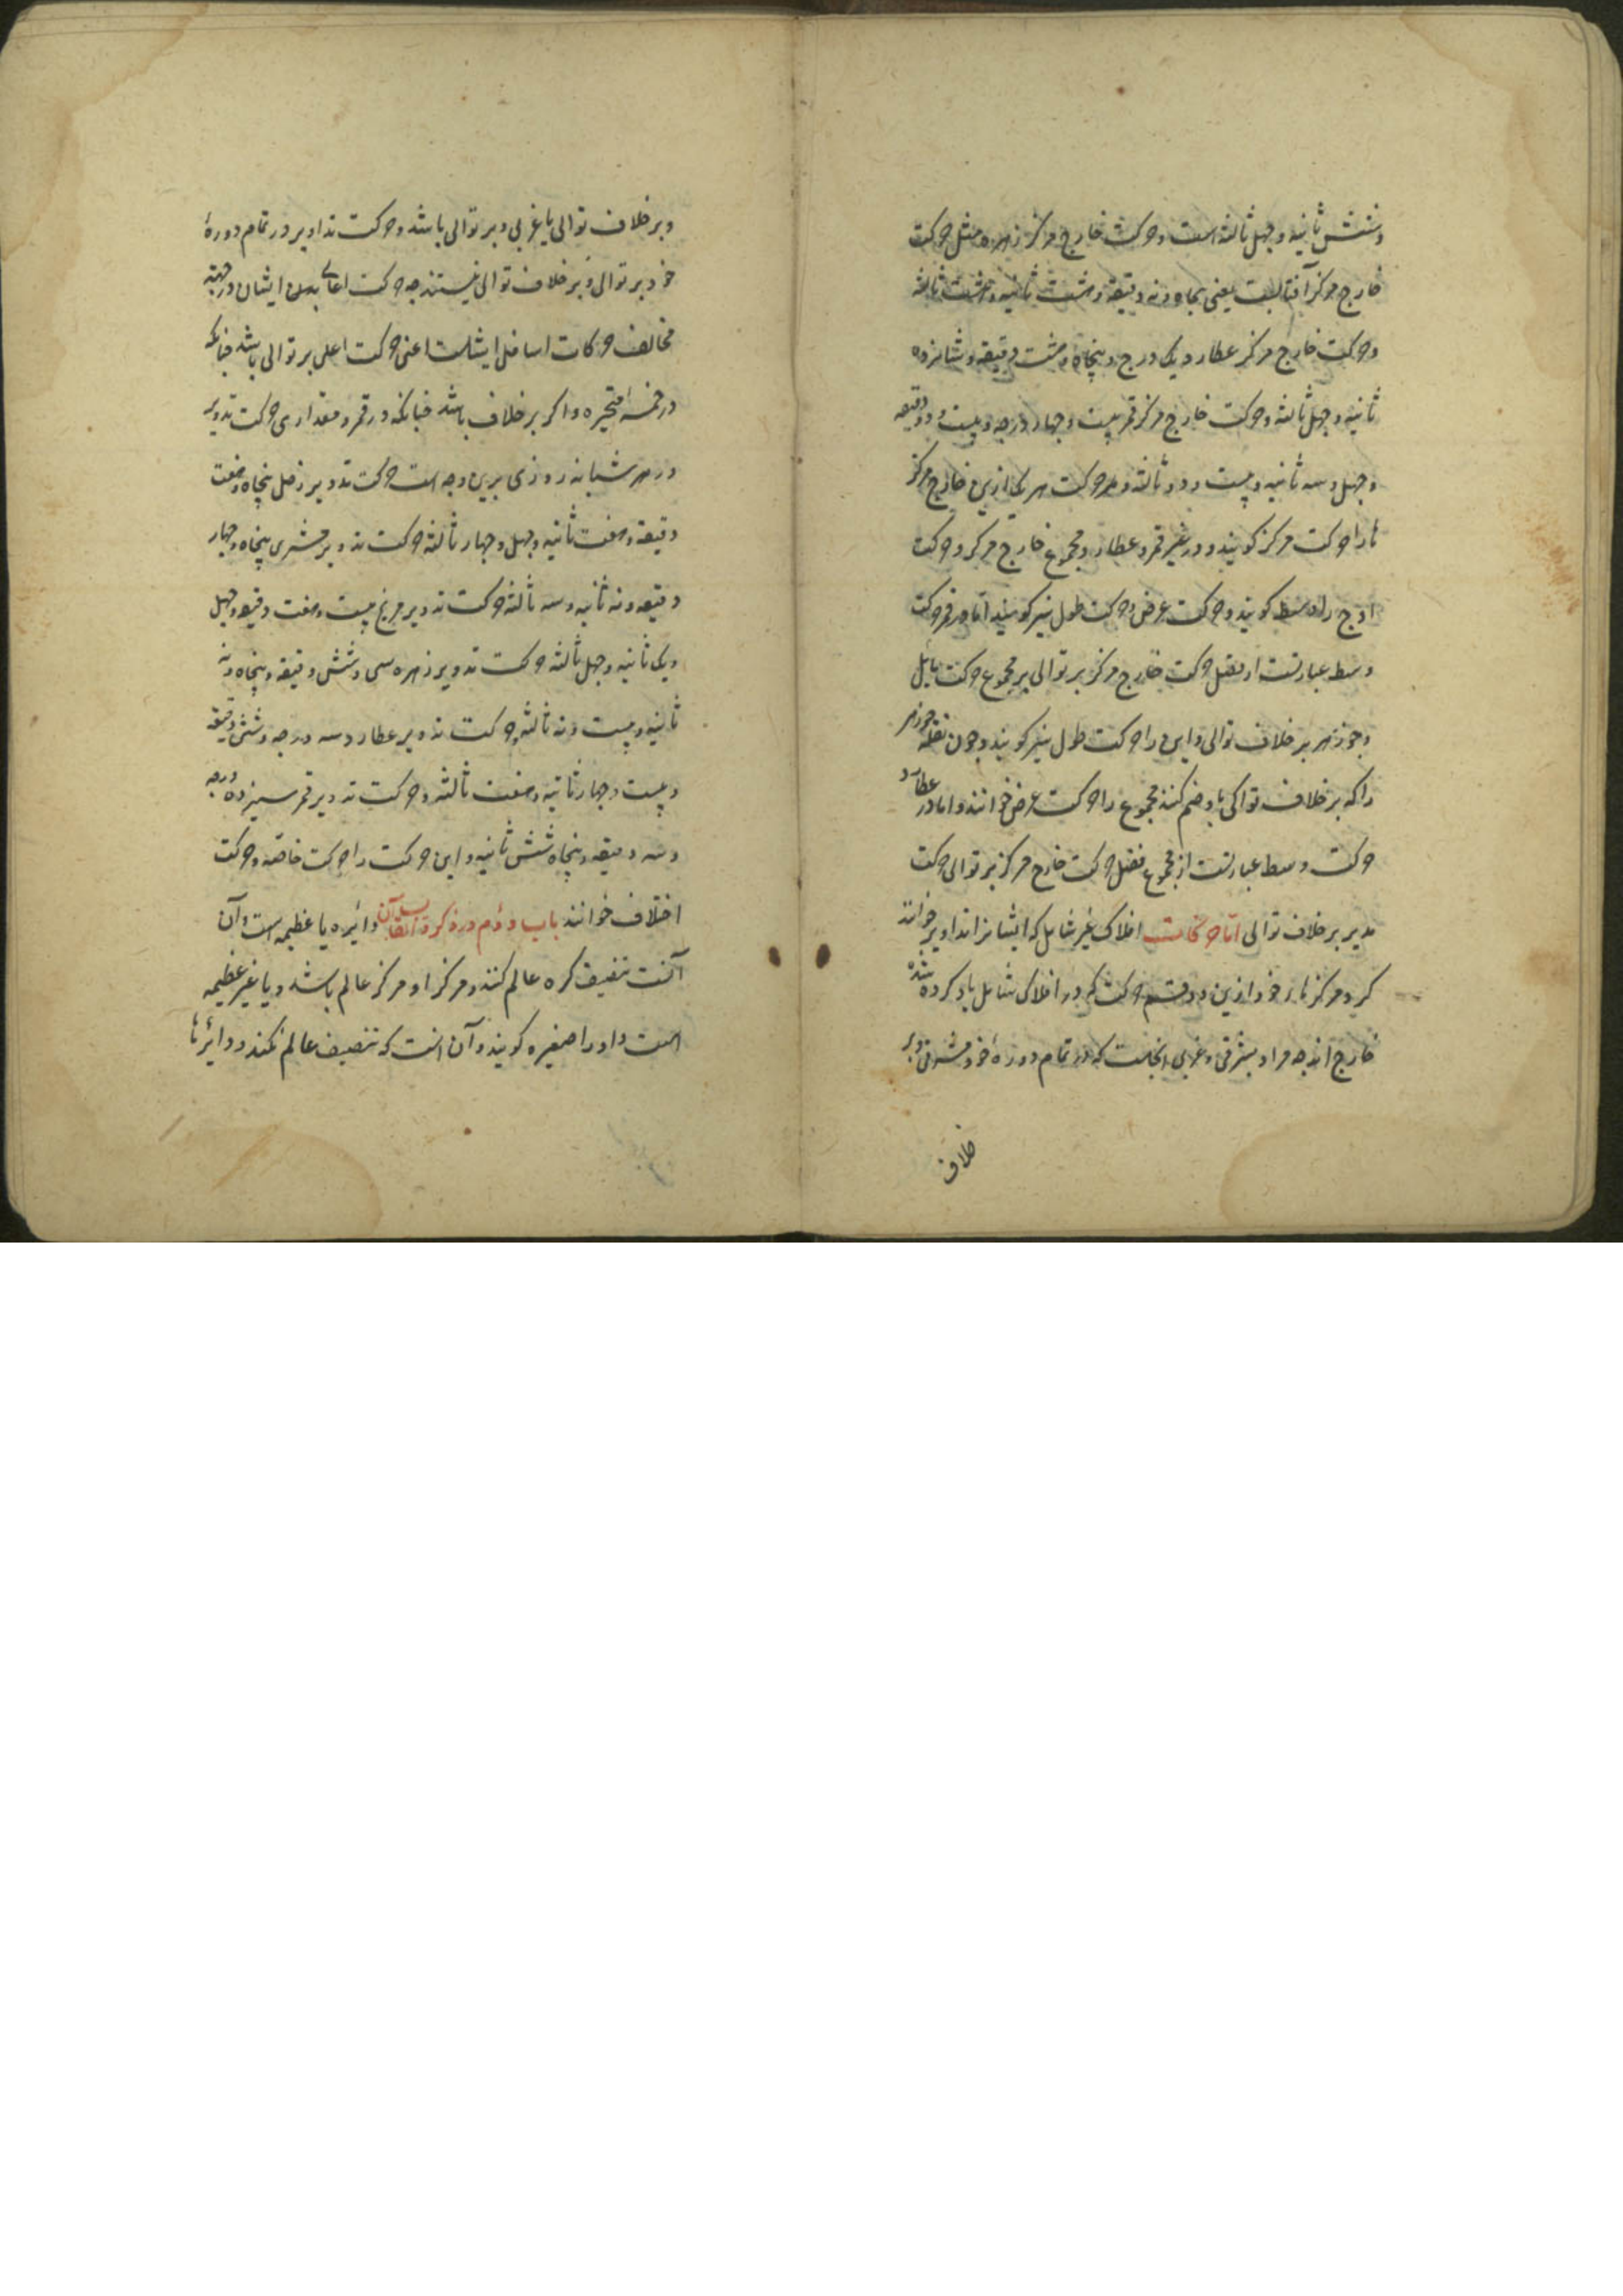 وشش ثانیه و چهل ثالثه است و حرکت خارج مرکز زهره مثل حرکت
خارج مرکز آفتابست یعنی پنجاه و نه دقیقه و هشت ثانیه و هشت ثالثه
و حرکت خارج مرکز عطارد یک درج و پنجاه و هشت دقیقه و شانزده
ثانیه و چهل ثالثه و حرکت خارج مرکز قمر بیست و چهار درجه و بیست و دو دقیقه
و چهل و سه ثانیه و بیست و دو ثالثه و حرکت هر یک ازین خارج مرکز
ها را حرکت مرکز کویند و در غیر قمر و عطارد مجموع خارج مرکز و حرکت
اوج را وسط کویند و حرکت عرض و حرکت طول نیز کویند اما در قمر حرکت
وسط عبارتست از فضل حرکت خارج مرکز بر توالی بر مجموع حرکت مایل
و جوزهر بر خلاف توالی و این را حرکت طول نیز کویند و چون نقله جوزهر
را که بر خلاف توالی با وضم کنند مجموع را حرکت عرض خوانند و اما در عطارد
حرکت وسط عبارتست از مجموع فضل حرکت خارج مرکز بر توالی حرکت
مدیر بر خلاف توالی اما حرکات افلاک غیر شامل که ایشانرا تداویر خوانند
کرد مرکز ها خود ازین دو قسم حرکت که در افلاک شامل یاد کرده شده
خارج اند چه مراد بشرقی و غربی انجاست که در تمام دوره خود مشرقی و بر
خلاف
و بر خلاف توالی یا غربی و بر توالی باشد و حرکت تداویر در تمام دورهٔ
خود بر توالی و بر خلاف توالی نیستند چه حرکت اعالی ایشان در جهة
مخالف حرکات اسافل ایشانست اعنی حرکت اعلی بر توالی باشد چنانکه
در خمسهٔ متحیره و اکر بر خلاف باشد چنانکه در قمر و مقداری حرکت تدویر
در هر شبانه روزی برین وجه است حرکت تدویر زحل پنجاه و هفت
دقیقه و هفت ثانیه و چهل و چهار ثالثه حرکت تدویر مشتری پنجاه و چهار
دقیقه و نه ثانیه و سه ثالثه حرکت تدویر مریخ بیست و هفت دقیقه و چهل
و یک ثانیه و چهل ثالثه حرکت تدویر زهره سی و شش دقیقه و پنجاه و نه
ثانیه و بیست و نه ثالثه حرکت تدویر عطارد سه درجه و شش دقیقه
و بیست و چهار ثانیه و هفت ثالثه و حرکت تدویر قمر سیزده درجه
و سه دقیقه و پنجاه شش ثانیه و این حرکت را حرکت خاصه و حرکت
اختلاف خوانند باب دوم در ذکر دوایر دائیره یا عظیمه است و آن
آنست تنصیف کره عالم کنند و مرکز او مرکز عالم باشد و یا غیر عظیمه
است و او را صغیره کویند و آن انست که تنصیف عالم نکند و دوایرها